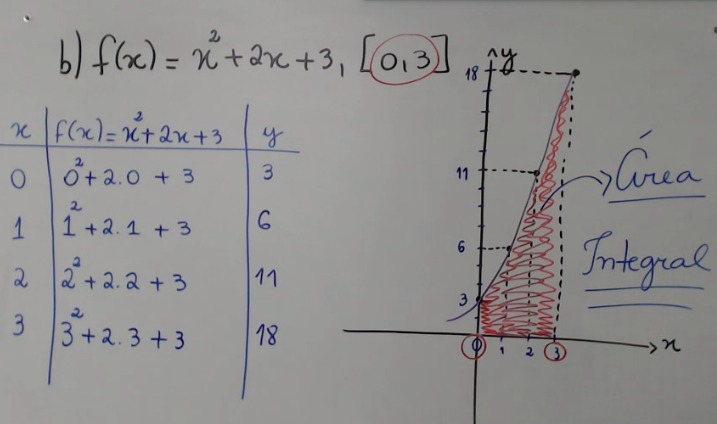 b) f(x) = x² + 2x + 3, [0,3]
x f(x) = x² + 2x + 3 y
0 0² + 2.0 + 3 3
1 1² + 2.1 + 3 6
2 2² + 2.2 + 3 11
3 3² + 2.3 + 3 18
y
18
11
6
3
0 1 2 3 x
Área
Integral